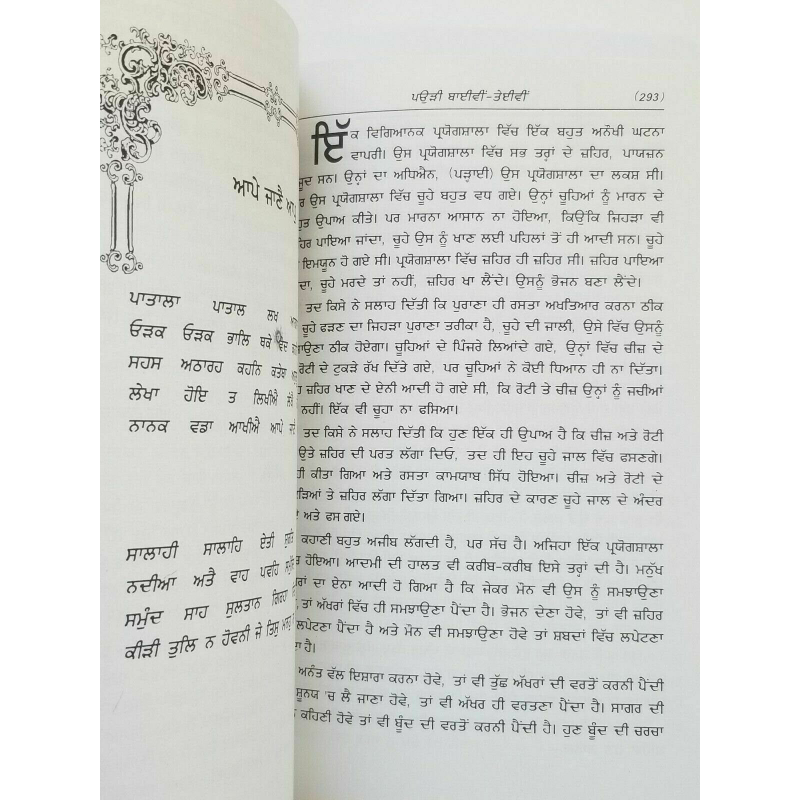 ਆਪੇ ਜਾਣੈ
ਪਾਤਾਲਾ ਪਾਤਾਲ ਲਖ
ਓੜਕ ਓੜਕ ਭਾਲਿ ਥਕੇ ਵੇਦ
ਸਹਸ ਅਠਾਰਹ ਕਹਨਿ ਕਤੇਬਾ
ਲੇਖਾ ਹੋਇ ਤ ਲਿਖੀਐ ਲੇਖੈ
ਨਾਨਕ ਵਡਾ ਆਖੀਐ ਆਪੇ
ਸਾਲਾਹੀ ਸਾਲਾਹਿ ਏਤੀ ਸੁਰਤਿ
ਨਦੀਆ ਅਤੈ ਵਾਹ ਪਵਹਿ
ਸਮੁੰਦ ਸਾਹ ਸੁਲਤਾਨ ਗਿਰਹਾ
ਕੀੜੀ ਤੁਲਿ ਨ ਹੋਵਨੀ ਜੇ ਤਿਸੁ
ਪਉੜੀ ਬਾਈਵੀਂ-ਤੇਈਵੀਂ (293)
ਇੱਕ ਵਿਗਿਆਨਕ ਪ੍ਰਯੋਗਸ਼ਾਲਾ ਵਿੱਚ ਇੱਕ ਬਹੁਤ ਅਨੋਖੀ ਘਟਨਾ
ਵਾਪਰੀ। ਉਸ ਪ੍ਰਯੋਗਸ਼ਾਲਾ ਵਿੱਚ ਸਭ ਤਰ੍ਹਾਂ ਦੇ ਜ਼ਹਿਰ, ਪਾਯਜ਼ਨ
ਜੂਦ ਸਨ। ਉਨ੍ਹਾਂ ਦਾ ਅਧਿਐਨ, (ਪੜ੍ਹਾਈ) ਉਸ ਪ੍ਰਯੋਗਸ਼ਾਲਾ ਦਾ ਲਕਸ਼ ਸੀ।
ਰ ਉਸ ਪ੍ਰਯੋਗਸ਼ਾਲਾ ਵਿੱਚ ਚੂਹੇ ਬਹੁਤ ਵਧ ਗਏ। ਉਨ੍ਹਾਂ ਚੂਹਿਆਂ ਨੂੰ ਮਾਰਨ ਦੇ
ਹੁਤ ਉਪਾਅ ਕੀਤੇ। ਪਰ ਮਾਰਨਾ ਆਸਾਨ ਨਾ ਹੋਇਆ, ਕਿਉਂਕਿ ਜਿਹੜਾ ਵੀ
ਹਿਰ ਪਾਇਆ ਜਾਂਦਾ, ਚੂਹੇ ਉਸ ਨੂੰ ਖਾਣ ਲਈ ਪਹਿਲਾਂ ਤੋਂ ਹੀ ਆਦੀ ਸਨ। ਚੂਹੇ
ਇਮਯੂਨ ਹੋ ਗਏ ਸੀ। ਪ੍ਰਯੋਗਸ਼ਾਲਾ ਵਿੱਚ ਜ਼ਹਿਰ ਹੀ ਜ਼ਹਿਰ ਸੀ। ਜ਼ਹਿਰ ਪਾਇਆ
ਦਾ, ਚੂਹੇ ਮਰਦੇ ਤਾਂ ਨਹੀਂ, ਜ਼ਹਿਰ ਖਾ ਲੈਂਦੇ। ਉਸਨੂੰ ਭੋਜਨ ਬਣਾ ਲੈਂਦੇ।
ਤਦ ਕਿਸੇ ਨੇ ਸਲਾਹ ਦਿੱਤੀ ਕਿ ਪੁਰਾਣਾ ਹੀ ਰਸਤਾ ਅਖਤਿਆਰ ਕਰਨਾ ਠੀਕ
ਚੂਹੇ ਫੜਣ ਦਾ ਜਿਹੜਾ ਪੁਰਾਣਾ ਤਰੀਕਾ ਹੈ, ਚੂਹੇ ਦੀ ਜਾਲੀ, ਉਸੇ ਵਿੱਚ ਉਸਨੂੰ
ਾਉਣਾ ਠੀਕ ਹੋਏਗਾ। ਚੂਹਿਆਂ ਦੇ ਪਿੰਜਰੇ ਲਿਆਂਦੇ ਗਏ, ਉਨ੍ਹਾਂ ਵਿੱਚ ਚੀਜ਼ ਦੇ
ਰੋਟੀ ਦੇ ਟੁਕੜੇ ਰੱਖ ਦਿੱਤੇ ਗਏ, ਪਰ ਚੂਹਿਆਂ ਨੇ ਕੋਈ ਧਿਆਨ ਹੀ ਨਾ ਦਿੱਤਾ।
ਜ਼ਹਿਰ ਖਾਣ ਦੇ ਏਨੀ ਆਦੀ ਹੋ ਗਏ ਸੀ, ਕਿ ਰੋਟੀ ਤੇ ਚੀਜ਼ ਉਨ੍ਹਾਂ ਨੂੰ ਜਚੀਆਂ
ਨਹੀਂ। ਇੱਕ ਵੀ ਚੂਹਾ ਨਾ ਫਸਿਆ।
ਤਦ ਕਿਸੇ ਨੇ ਸਲਾਹ ਦਿੱਤੀ ਕਿ ਹੁਣ ਇੱਕ ਹੀ ਉਪਾਅ ਹੈ ਕਿ ਚੀਜ਼ ਅਤੇ ਰੋਟੀ
ਉਤੇ ਜ਼ਹਿਰ ਦੀ ਪਰਤ ਲੱਗਾ ਦਿਓ, ਤਦ ਹੀ ਇਹ ਚੂਹੇ ਜਾਲ ਵਿੱਚ ਫਸਣਗੇ।
ਹੀ ਕੀਤਾ ਗਿਆ ਅਤੇ ਰਸਤਾ ਕਾਮਯਾਬ ਸਿੱਧ ਹੋਇਆ। ਚੀਜ਼ ਅਤੇ ਰੋਟੀ ਦੇ
ੜਿਆਂ ਤੇ ਜ਼ਹਿਰ ਲੱਗਾ ਦਿੱਤਾ ਗਿਆ। ਜ਼ਹਿਰ ਦੇ ਕਾਰਣ ਚੂਹੇ ਜਾਲ ਦੇ ਅੰਦਰ
ਅਤੇ ਫਸ ਗਏ।
ਕਹਾਣੀ ਬਹੁਤ ਅਜੀਬ ਲੱਗਦੀ ਹੈ, ਪਰ ਸੱਚ ਹੈ। ਅਜਿਹਾ ਇੱਕ ਪ੍ਰਯੋਗਸ਼ਾਲਾ
ਹੋਇਆ। ਆਦਮੀ ਦੀ ਹਾਲਤ ਵੀ ਕਰੀਬ-ਕਰੀਬ ਇਸੇ ਤਰ੍ਹਾਂ ਦੀ ਹੈ। ਮਨੁੱਖ
ਰਾਂ ਦਾ ਏਨਾ ਆਦੀ ਹੋ ਗਿਆ ਹੈ ਕਿ ਜੇਕਰ ਮੌਨ ਵੀ ਉਸ ਨੂੰ ਸਮਝਾਉਣਾ
ਤਾਂ ਅੱਖਰਾਂ ਵਿੱਚ ਹੀ ਸਮਝਾਉਣਾ ਪੈਂਦਾ ਹੈ। ਭੋਜਨ ਦੇਣਾ ਹੋਵੇ, ਤਾਂ ਵੀ ਜ਼ਹਿਰ
ਲਪੇਟਣਾ ਪੈਂਦਾ ਹੈ ਅਤੇ ਮੌਨ ਵੀ ਸਮਝਾਉਣਾ ਹੋਵੇ ਤਾਂ ਸ਼ਬਦਾਂ ਵਿੱਚ ਲਪੇਟਣਾ
ਦਾ ਹੈ।
ਅਨੰਤ ਵੱਲ ਇਸ਼ਾਰਾ ਕਰਨਾ ਹੋਵੇ, ਤਾਂ ਵੀ ਤੁੱਛ ਅੱਖਰਾਂ ਦੀ ਵਰਤੋਂ ਕਰਨੀ ਪੈਂਦੀ
ਸ਼ੂਨਯ 'ਚ ਲੈ ਜਾਣਾ ਹੋਵੇ, ਤਾਂ ਵੀ ਅੱਖਰ ਹੀ ਵਰਤਣਾ ਪੈਂਦਾ ਹੈ। ਸਾਗਰ ਦੀ
ਕਹਿਣੀ ਹੋਵੇ ਤਾਂ ਵੀ ਬੂੰਦ ਦੀ ਵਰਤੋਂ ਕਰਨੀ ਪੈਂਦੀ ਹੈ। ਹੁਣ ਬੂੰਦ ਦੀ ਚਰਚਾ